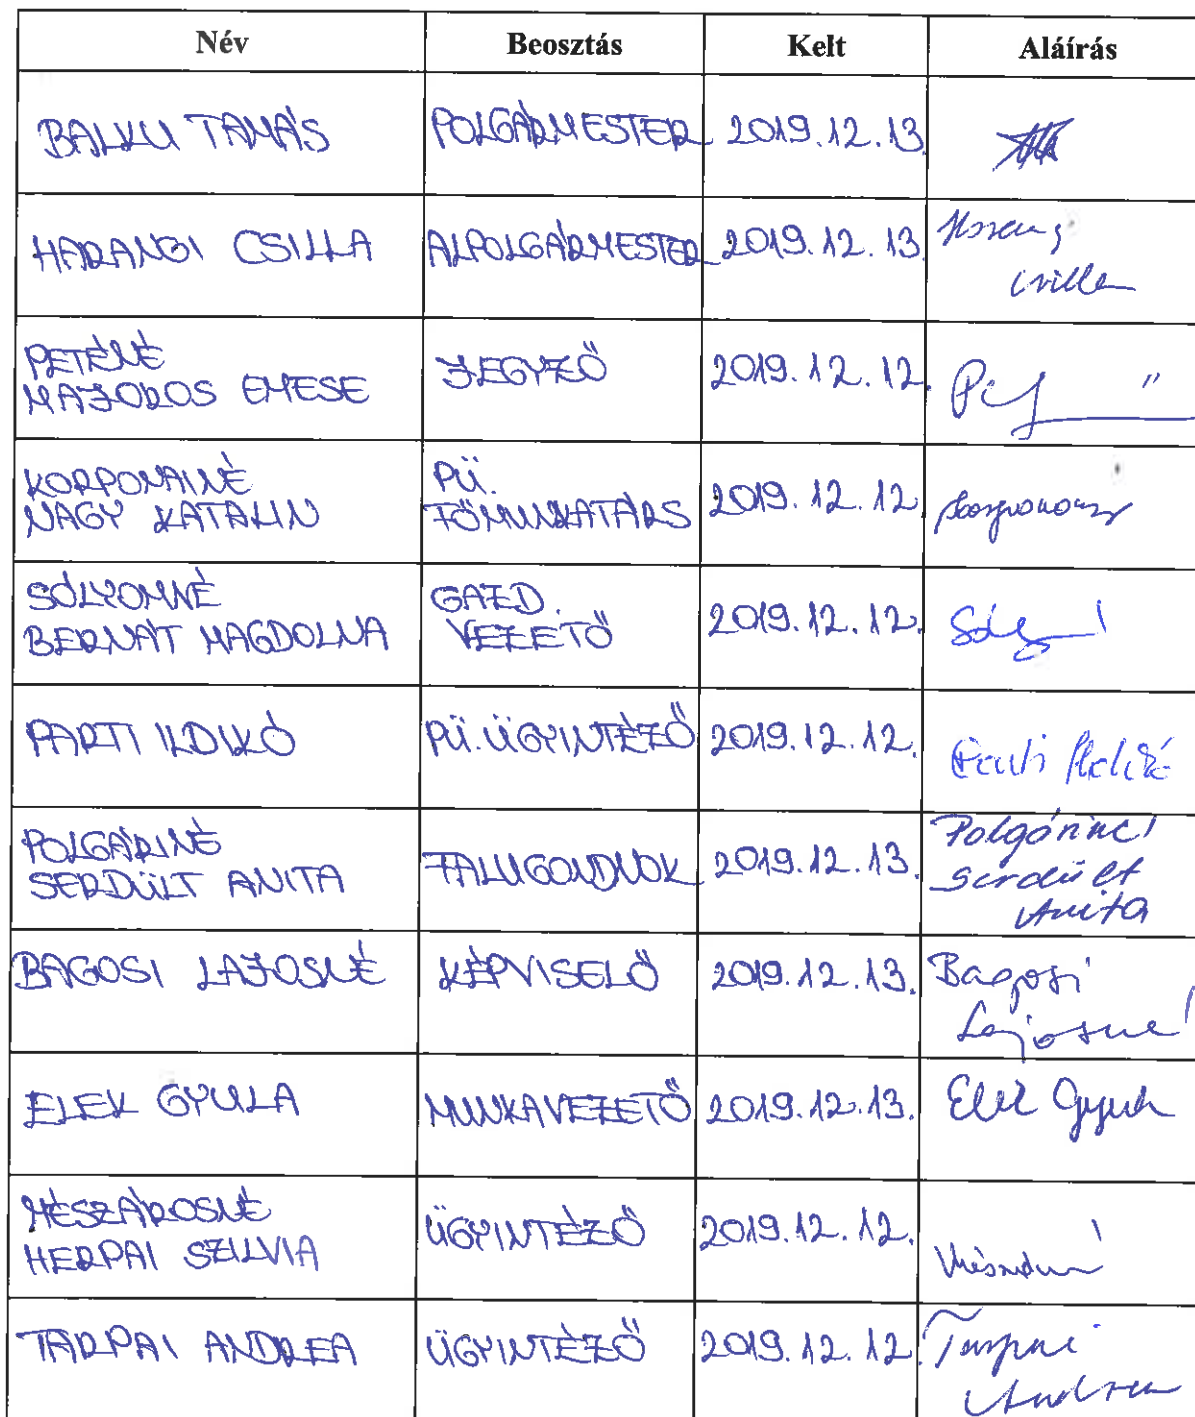 Név Beosztás Kelt Aláírás
BALKU TAMÁS POLGÁRMESTER 2019.12.13.
HARANGI CSILLA ALPOLGÁRMESTER 2019.12.13.
Csilla
PETÉNÉ
MAJOROS EMESE JEGYZŐ 2019.12.12.
KORPONAINÉ PÜ.
NAGY KATALIN FŐMUNKATÁRS 2019.12.12.
SÓLYOMNÉ GAZD.
BERNÁT MAGDOLNA VEZETŐ 2019.12.12.
PARTI ILDIKÓ PÜ. ÜGYINTÉZŐ 2019.12.12. Parti Ildikó
POLGÁRINÉ Polgáriné
SERDÜLT ANITA FALUGONDNOK 2019.12.13. Serdült
Anita
BAGOSI LAJOSNÉ KÉPVISELŐ 2019.12.13. Bagosi
Lajosné
ELEK GYULA MUNKAVEZETŐ 2019.12.13. Elek Gyula
MÉSZÁROSNÉ
HERPAI SZILVIA ÜGYINTÉZŐ 2019.12.12.
TARPAI ANDREA ÜGYINTÉZŐ 2019.12.12. Tarpai
Andrea